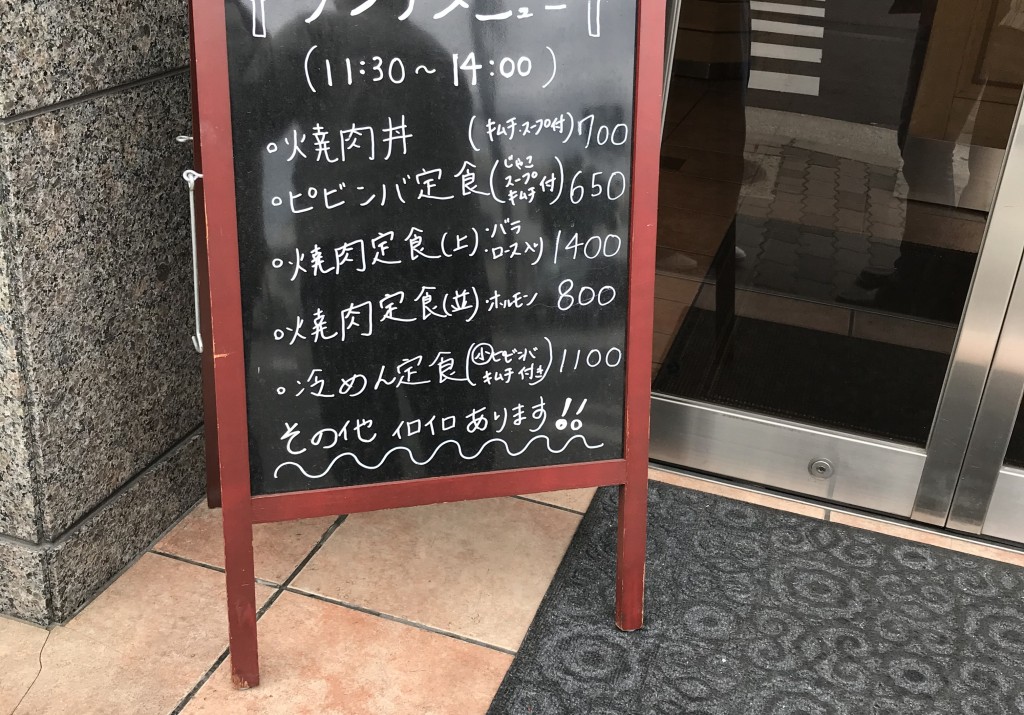 ランチメニュー
(11:30～14:00)
・火焼肉丼 (キムチ・スープ付) 700
・ピビンバ定食 (じゃこ スープ キムチ付) 650
・火焼肉定食(上):バラ・ロース入り 1400
・火焼肉定食(並)・ホルモン 800
・冷めん定食 (小ビビンバ キムチ付き) 1100
その他 イロイロ あります!!